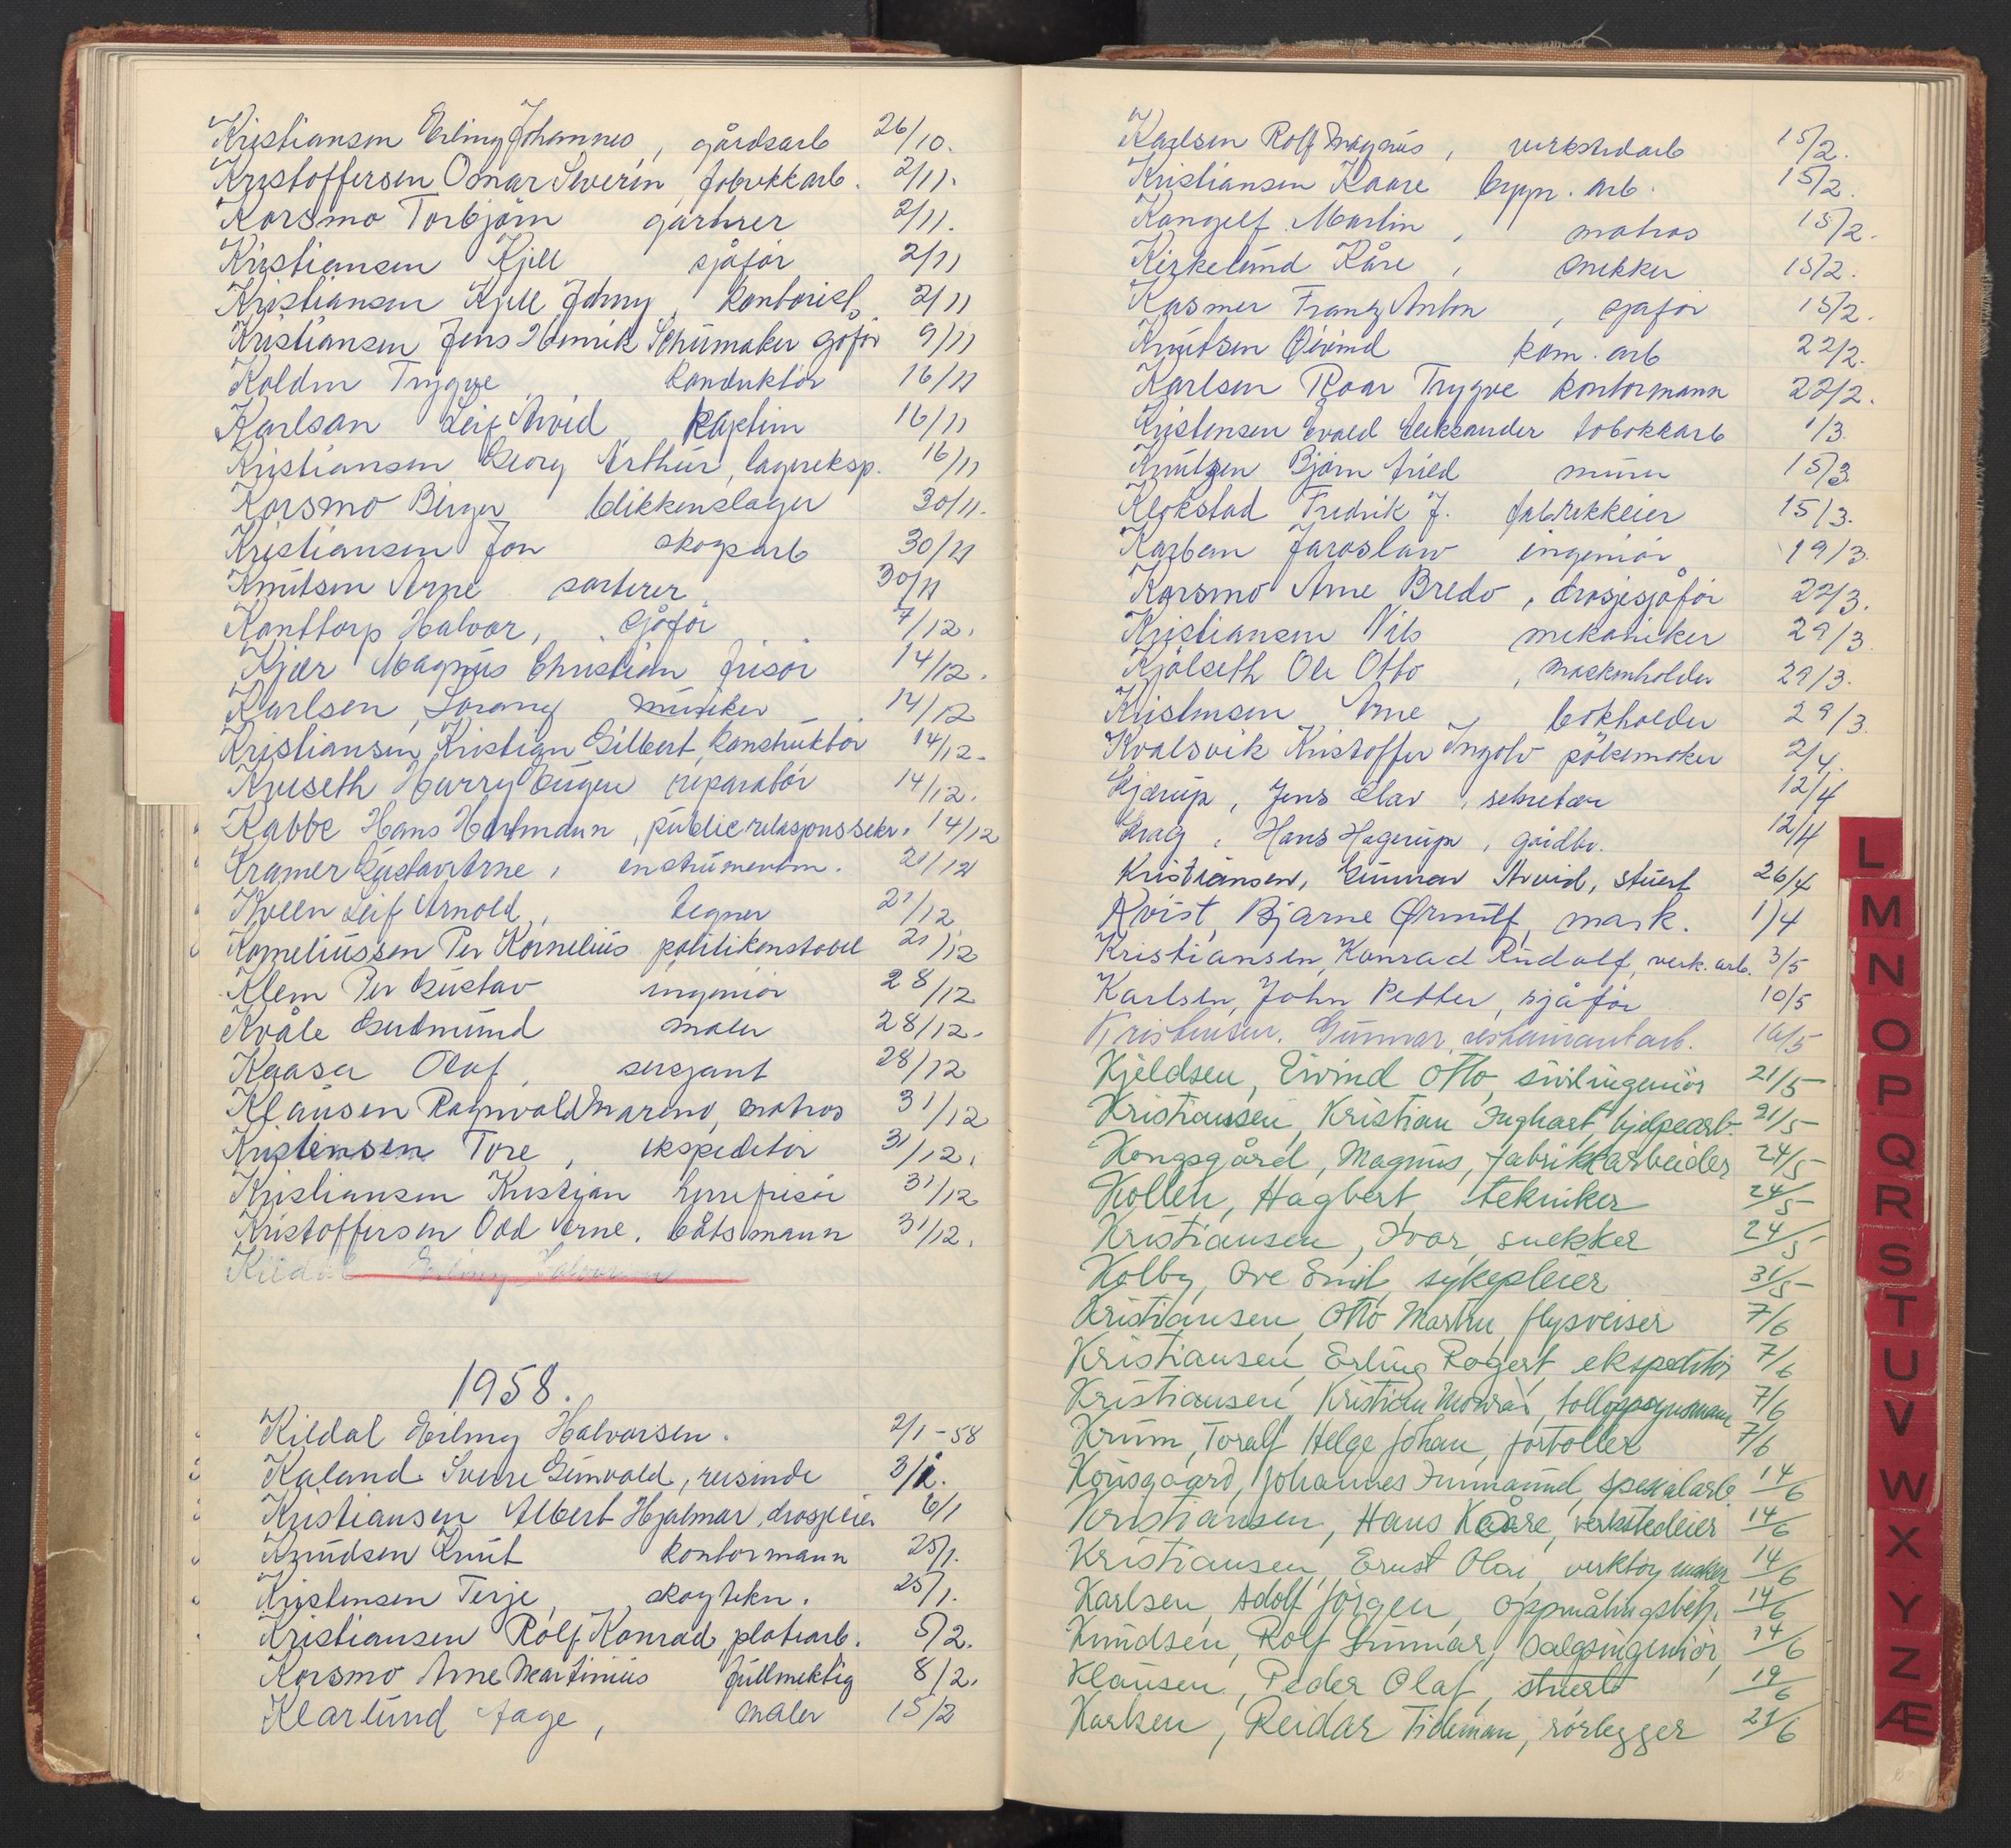 Kristiansen Erling Johannes, gårdsarb 26/10.
Kristoffersen Omar Severin fabrikkarb. 2/11.
Korsmo Torbjörn gartner 2/11.
Kristiansen Kjell sjåför 2/11
Kristiansen Kjell Johny, kontorist, 2/11
Kristiansen Jens Henrik Schumaker sjåför 9/11
Koldin Trygve konduktör 16/11
Karlsan Leif Arvid kaptein 16/11
Kristiansen Georg Arthur, lagereksp. 16/11
Korsmo Birger blikkenslager 30/11.
Kristiansen Jon skogsarb 30/11
Knutsen Arne sorterer 30/11
Kanttorp Halvor, sjåför 7/12.
Kjær Magnus Christian frisör 14/12.
Karlsen, Lorang musiker 14/12
Kristiansen, Kristian Gilbert, konstruktör 14/12.
Kveseth Harry Eugen reparatör 14/12.
Kabbe Hans Hartmann, public relasjonssekr. 14/12
Kramer Gustav Arne, instrumentm. 21/12
Kveen Leif Arnold, tegner 21/12
Korneliussen Per Kornelius politikonstabel 21/12
Klem Per Gustav ingeniör 28/12
Kvåle Gudmund maler 28/12.
Kaasa Olaf, sersjant 28/12
Klausen Ragnvald Mareno, matros 31/12
Kristensen Tore, ekspeditör 31/12.
Kristiansen Kristian herrefrisör 31/12
Kristoffersen Odd Arne. båtsmann 31/12.
Kildal Erling Halvorsen
1958.
Kildal Erling Halvorsen. 2/1-58
Kaland Sverre Gunvald, reisende 3/1.
Kristiansen Albert Hjalmar, drosjeeier 6/1
Knudsen Knut kontormann 25/1.
Kristensen Terje, skogtekn. 25/1.
Kristiansen Rolf Konrad platearb. 5/2.
Korsmo Arne Martinius fullmektig 8/2.
Klarlund Aage, maler 15/2
Karlsen Rolf Magnus, verkstedarb 15/2.
Kristiansen Kaare bygn. arb. 15/2.
Kongelf Martin, matros 15/2.
Kirkelund Kåre, snekker 15/2.
Kasmer Franz Anton, sjåför 15/2.
Knutsen Öivind kom. arb 22/2.
Karlsen Roar Trygve kontormann 22/2.
Kristensen Evald Aleksander tobakkarb 1/3.
Knutzen Björn Arild murer 15/3.
Klokstad Fredrik J. fabrikkeier 15/3.
Karban Jaroslaw ingeniör 19/3.
Korsmo Arne Bredo, drosjesjåför 22/3.
Kristiansen Nils mekaniker 29/3
Kjölseth Ole Otto, maskinholder 29/3.
Kristensen Arne, bokholder 29/3.
Kvalsvik Kristoffer Ingolv pölsemaker 2/4.
Kjærup, Jens Olav, sekretær 12/4
Krag, Hans Hagerup, gårdbr. 12/4
Kristiansen, Gunnar Arvid, stuert 26/4
Kvist, Bjarne Ørnulf, mask. 1/4
Kristiansen, Konrad Rudolf, verk. arb. 3/5
Karlsen, John Petter, sjåför 10/5
Kristensen, Gunnar, restaurantarb. 10/5
Kjeldsen, Eivind Otto, sivilingeniör 21/5
Kristiansen, Kristian Inghart, hjelpearb. 21/5
Kongsgård, Magnus, fabrikkarbeider 24/5
Kollen, Hagbert, tekniker 24/5
Kristiansen, Ivar, snekker 24/5
Kolby, Ove Emil, sykepleier 31/5
Kristiansen, Otto Martin, flysveiser 7/6
Kristiansen, Erling Rogert, ekspeditör 7/6
Kristiansen, Kristian Monrad, tolloppsynsmann 7/6
Krum, Toralf Helge Johan, fortoller 7/6
Kongsgaard, Johannes Immanuel, spesialarb. 14/6
Kristiansen, Hans Kåre, verkstedeier 14/6
Kristiansen, Ernst Olai, verktöymaker 14/6
Karlsen, Adolf Jörgen, oppmålingsbetj. 14/6
Knudsen, Rolf Gunnar, salgsingeniör, 14/6
Klausen, Peder Olaf, stuert 19/6
Karlsen, Reidar Tideman, rörlegger 21/6
L
M
N
O
P
Q
R
S
T
U
V
W
X
Y
Z
Æ